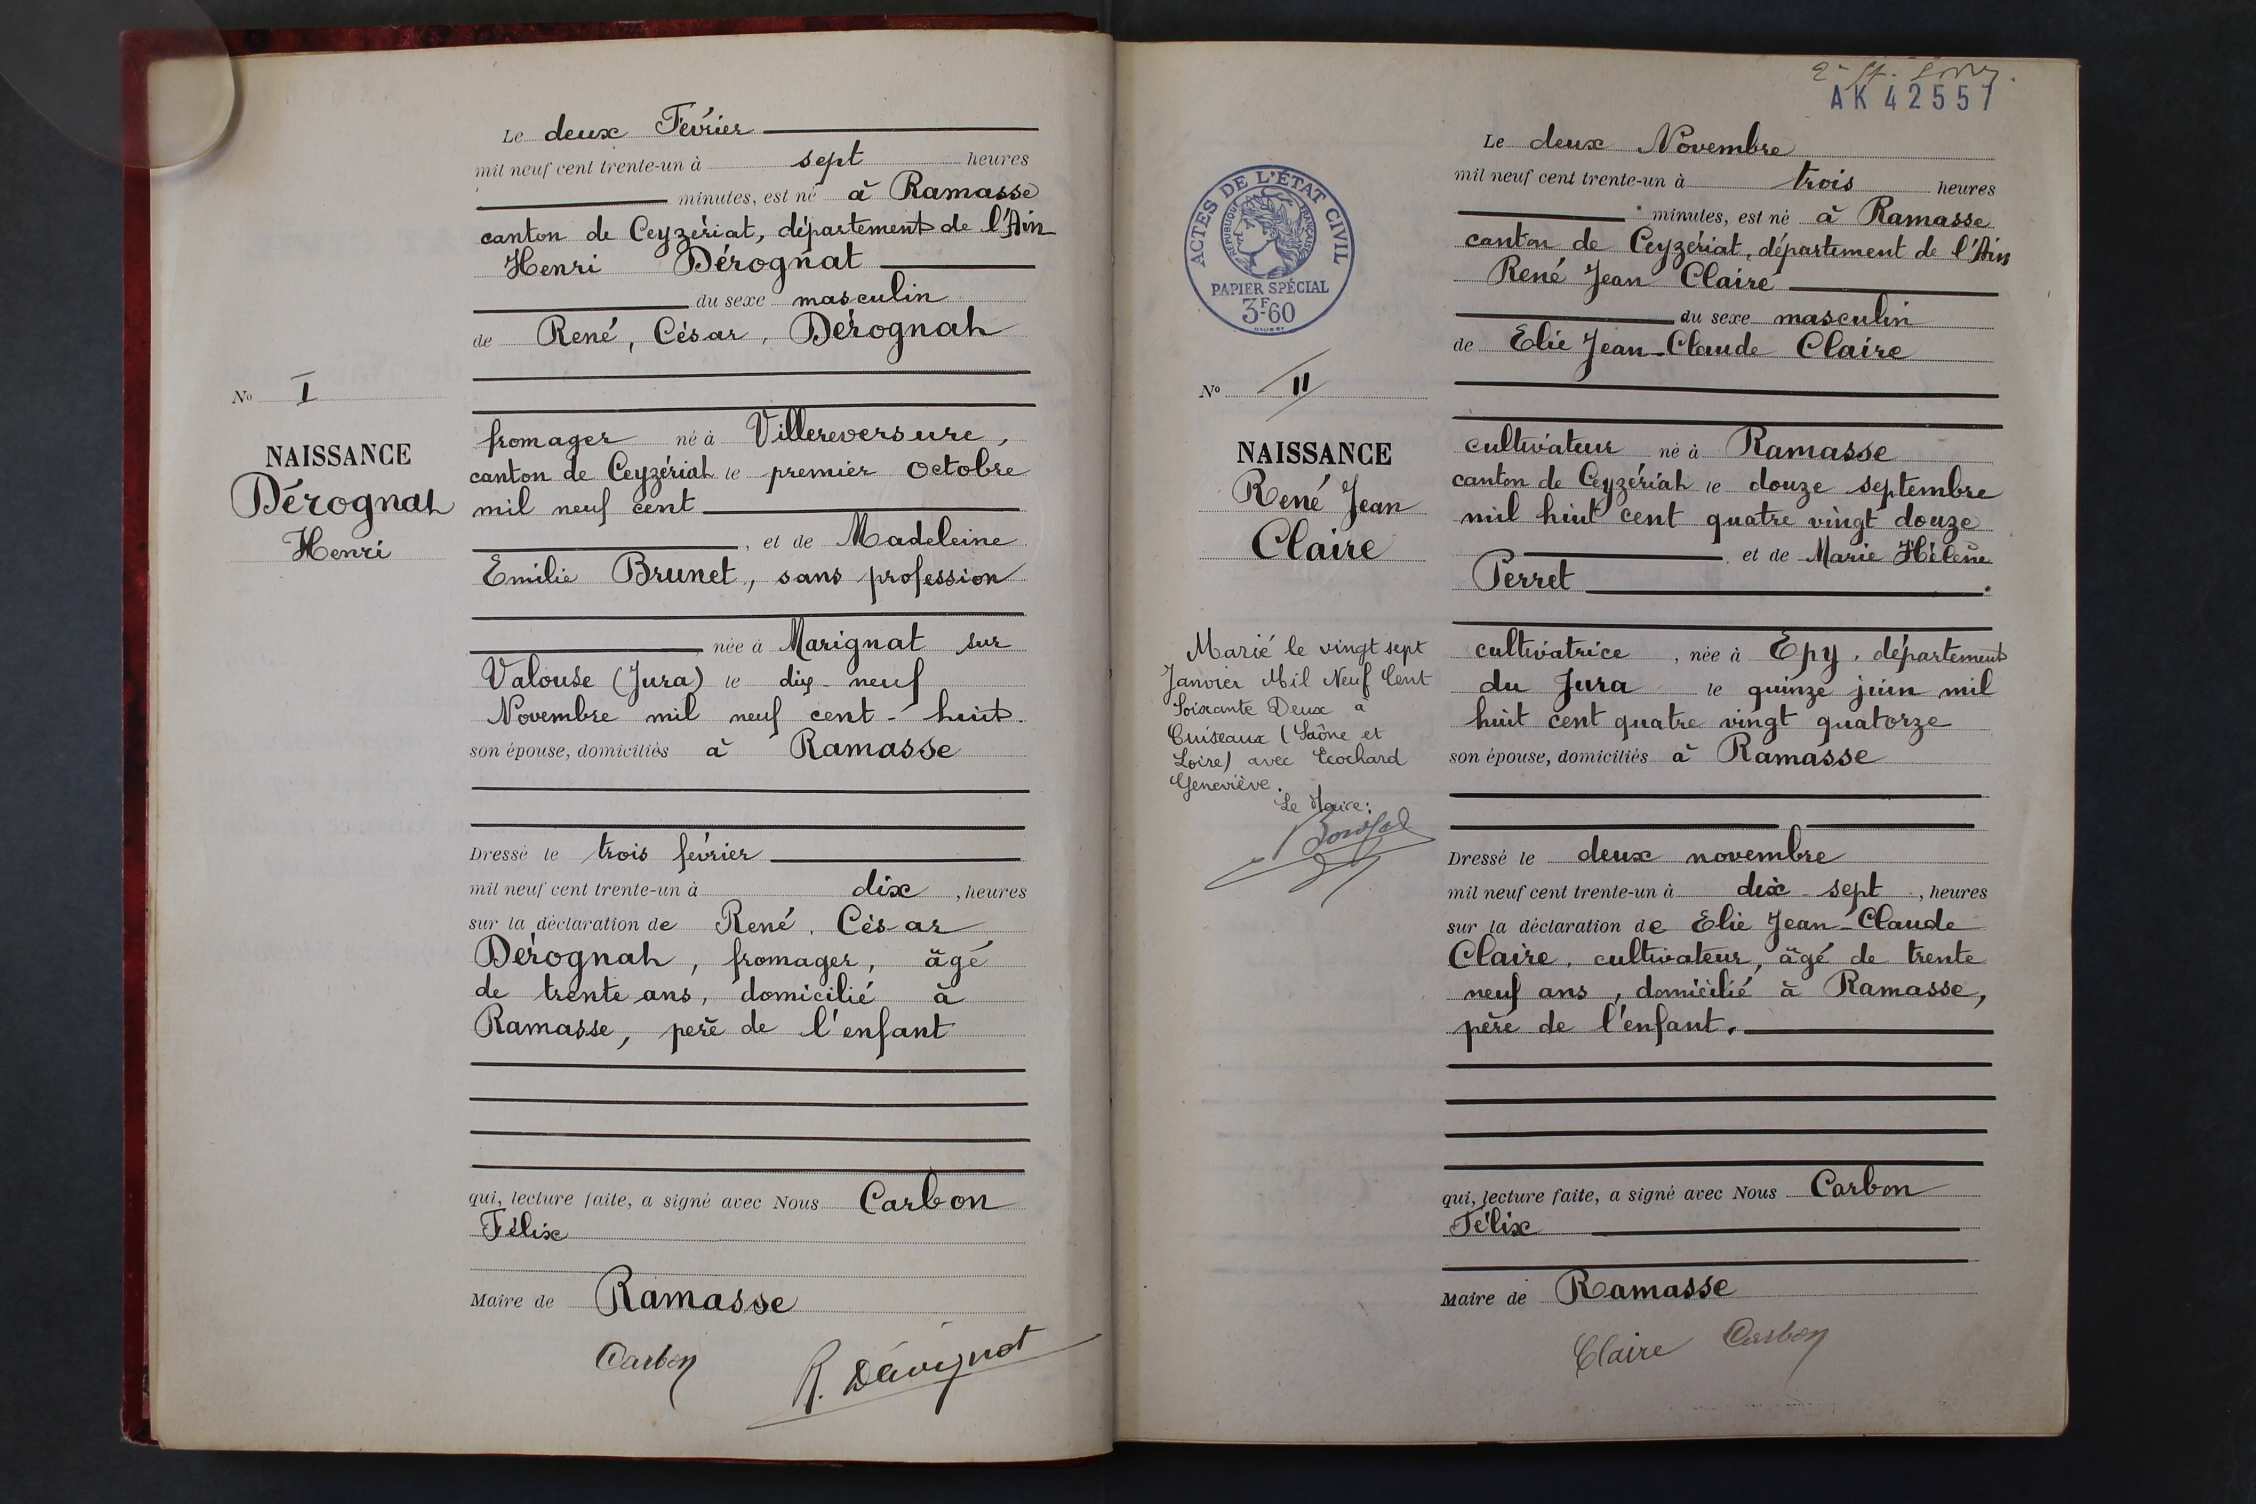 Le deux Février
mil neuf cent trente-un à sept heures
minutes, est né à Ramasse
canton de Ceyzériat, département de l'Ain
Henri Dérognat
du sexe masculin
de René, César, Dérognat
No I
NAISSANCE
Dérognat
Henri
fromager né à Villereversure,
canton de Ceyzériat le premier Octobre
mil neuf cent
, et de Madeleine
Emilie Brunet, sans profession
née à Marignat sur
Valouse (Jura) le dix-neuf
Novembre mil neuf cent-huit
son épouse, domiciliés à Ramasse
Dressé le trois février
mil neuf cent trente-un à dix, heures
sur la déclaration de René, César
Dérognat, fromager, âgé
de trente ans, domicilié à
Ramasse, père de l'enfant
qui, lecture faite, a signé avec Nous Carbon
Félix
Maire de Ramasse
Carbon
R. Dérognat
AK 42557
ACTES DE L'ÉTAT CIVIL
RÉPUBLIQUE FRANÇAISE
PAPIER SPÉCIAL
3F60
Le deux Novembre
mil neuf cent trente-un à trois heures
minutes, est né à Ramasse
canton de Ceyzériat, département de l'Ain
René Jean Claire
du sexe masculin
de Elie Jean-Claude Claire
No II
NAISSANCE
René Jean
Claire
Marié le vingt sept
Janvier Mil Neuf Cent
Soixante Deux à
Cuiseaux (Saône et
Loire) avec Ecochard
Geneviève.
Le Maire:
cultivateur né à Ramasse
canton de Ceyzériat le douze septembre
mil huit cent quatre vingt douze
et de Marie Hélène
Perret
cultivatrice, née à Epy, département
du Jura le quinze juin mil
huit cent quatre vingt quatorze
son épouse, domiciliés à Ramasse
Dressé le deux novembre
mil neuf cent trente-un à dix-sept, heures
sur la déclaration de Elie Jean-Claude
Claire, cultivateur, âgé de trente
neuf ans, domicilié à Ramasse,
père de l'enfant.
qui, lecture faite, a signé avec Nous Carbon
Félix
Maire de Ramasse
Claire Carbon